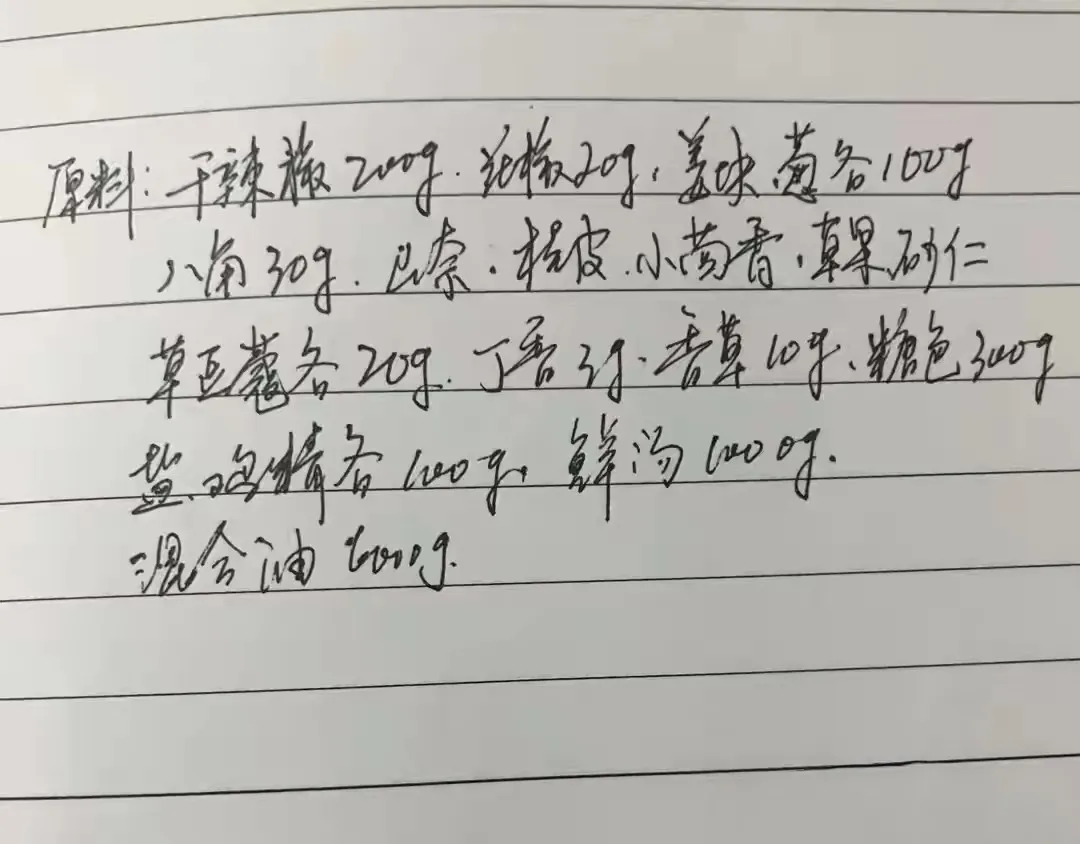 原料：干辣椒200g．花椒20g，姜块葱各100g
八角30g．巴奈．桂皮．小茴香．草果砂仁
草豆蔻各20g．丁香3g．香草10g、糖色300g
盐．鸡精各100g，鲜汤1000g．
混合油600g．